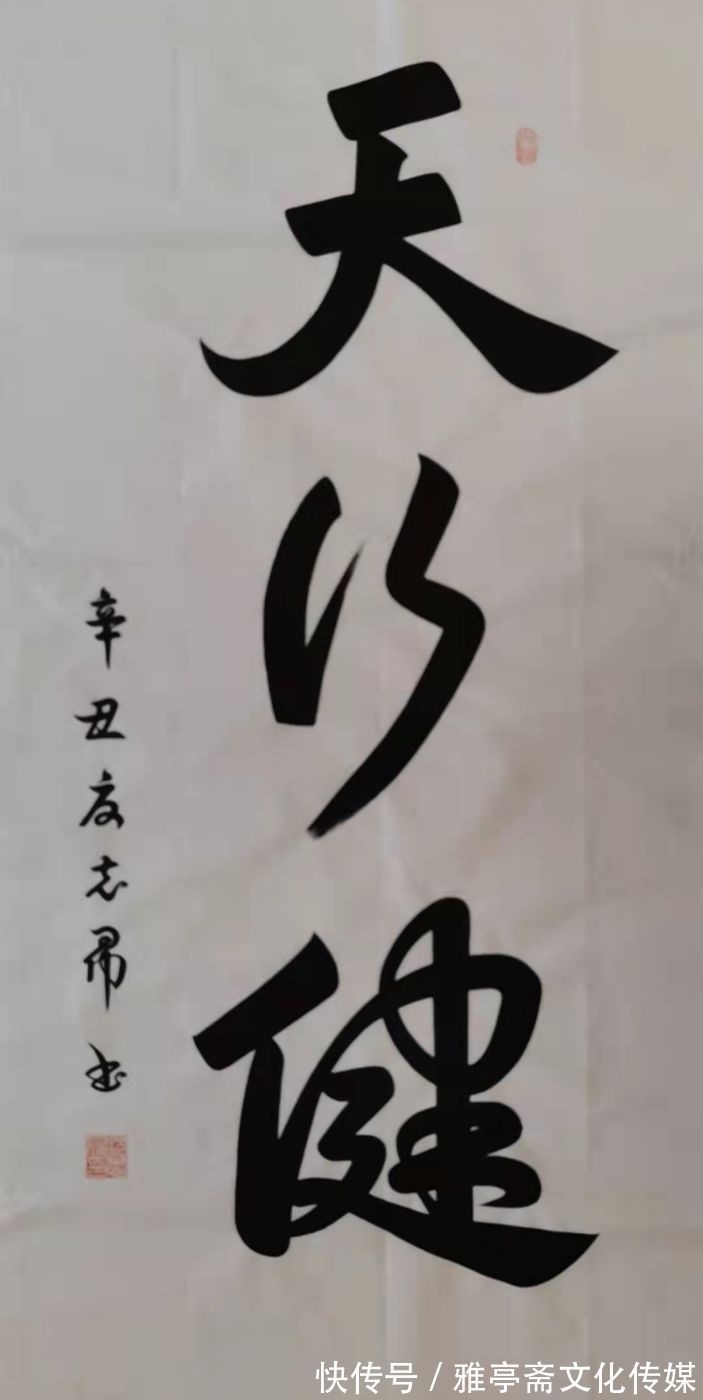 天行健
辛丑 志 书
快传号 / 雅亭斋文化传媒